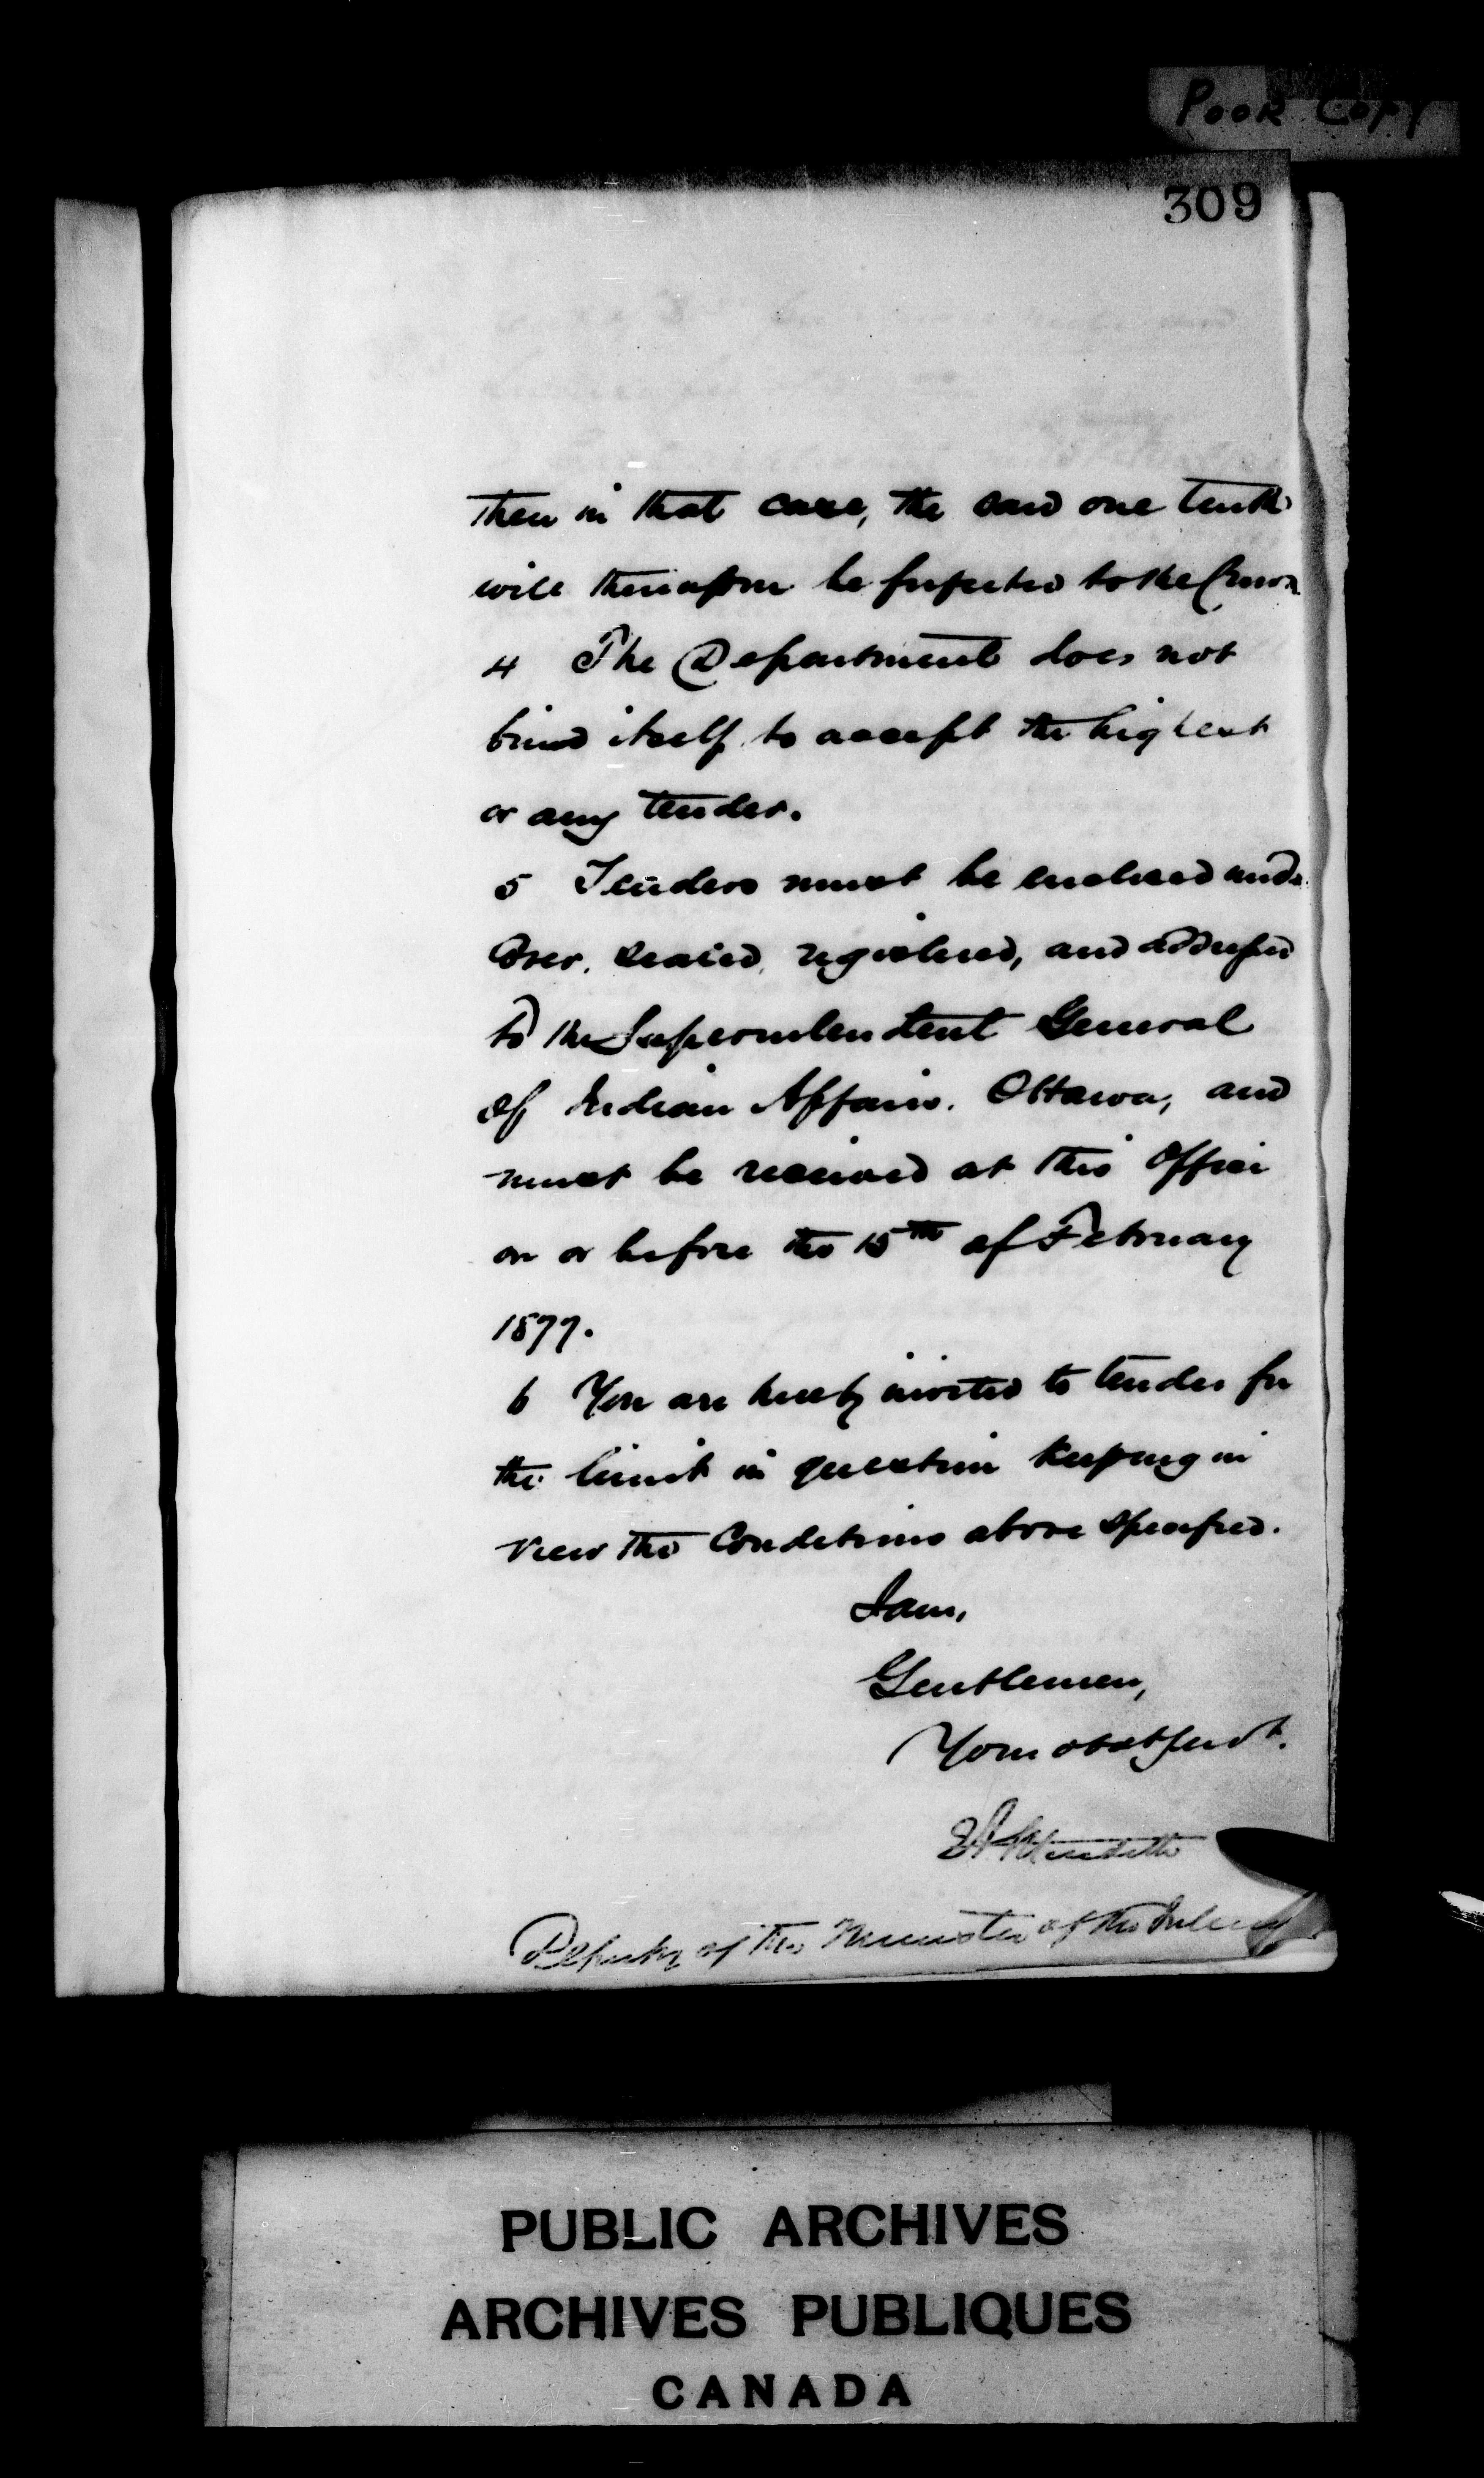 Poor Copy
309
then in that case, the said one tenth
will thereupon be forfeited to the Crown
4 The Department does not
bind itself to accept the highest
or any tender.
5 Tenders must be enclosed under
Cover, sealed, registered, and addressed
to the Superintendent General
of Indian Affairs. Ottawa, and
must be received at this Office
on or before the 15th of February
1877.
6 You are hereby invited to tender for
the limit in question keeping in
view the Conditions above specified.
I am,
Gentlemen,
Your obdt servt.
E A Meredith
Deputy of the Minister of the Interior
PUBLIC ARCHIVES
ARCHIVES PUBLIQUES
CANADA